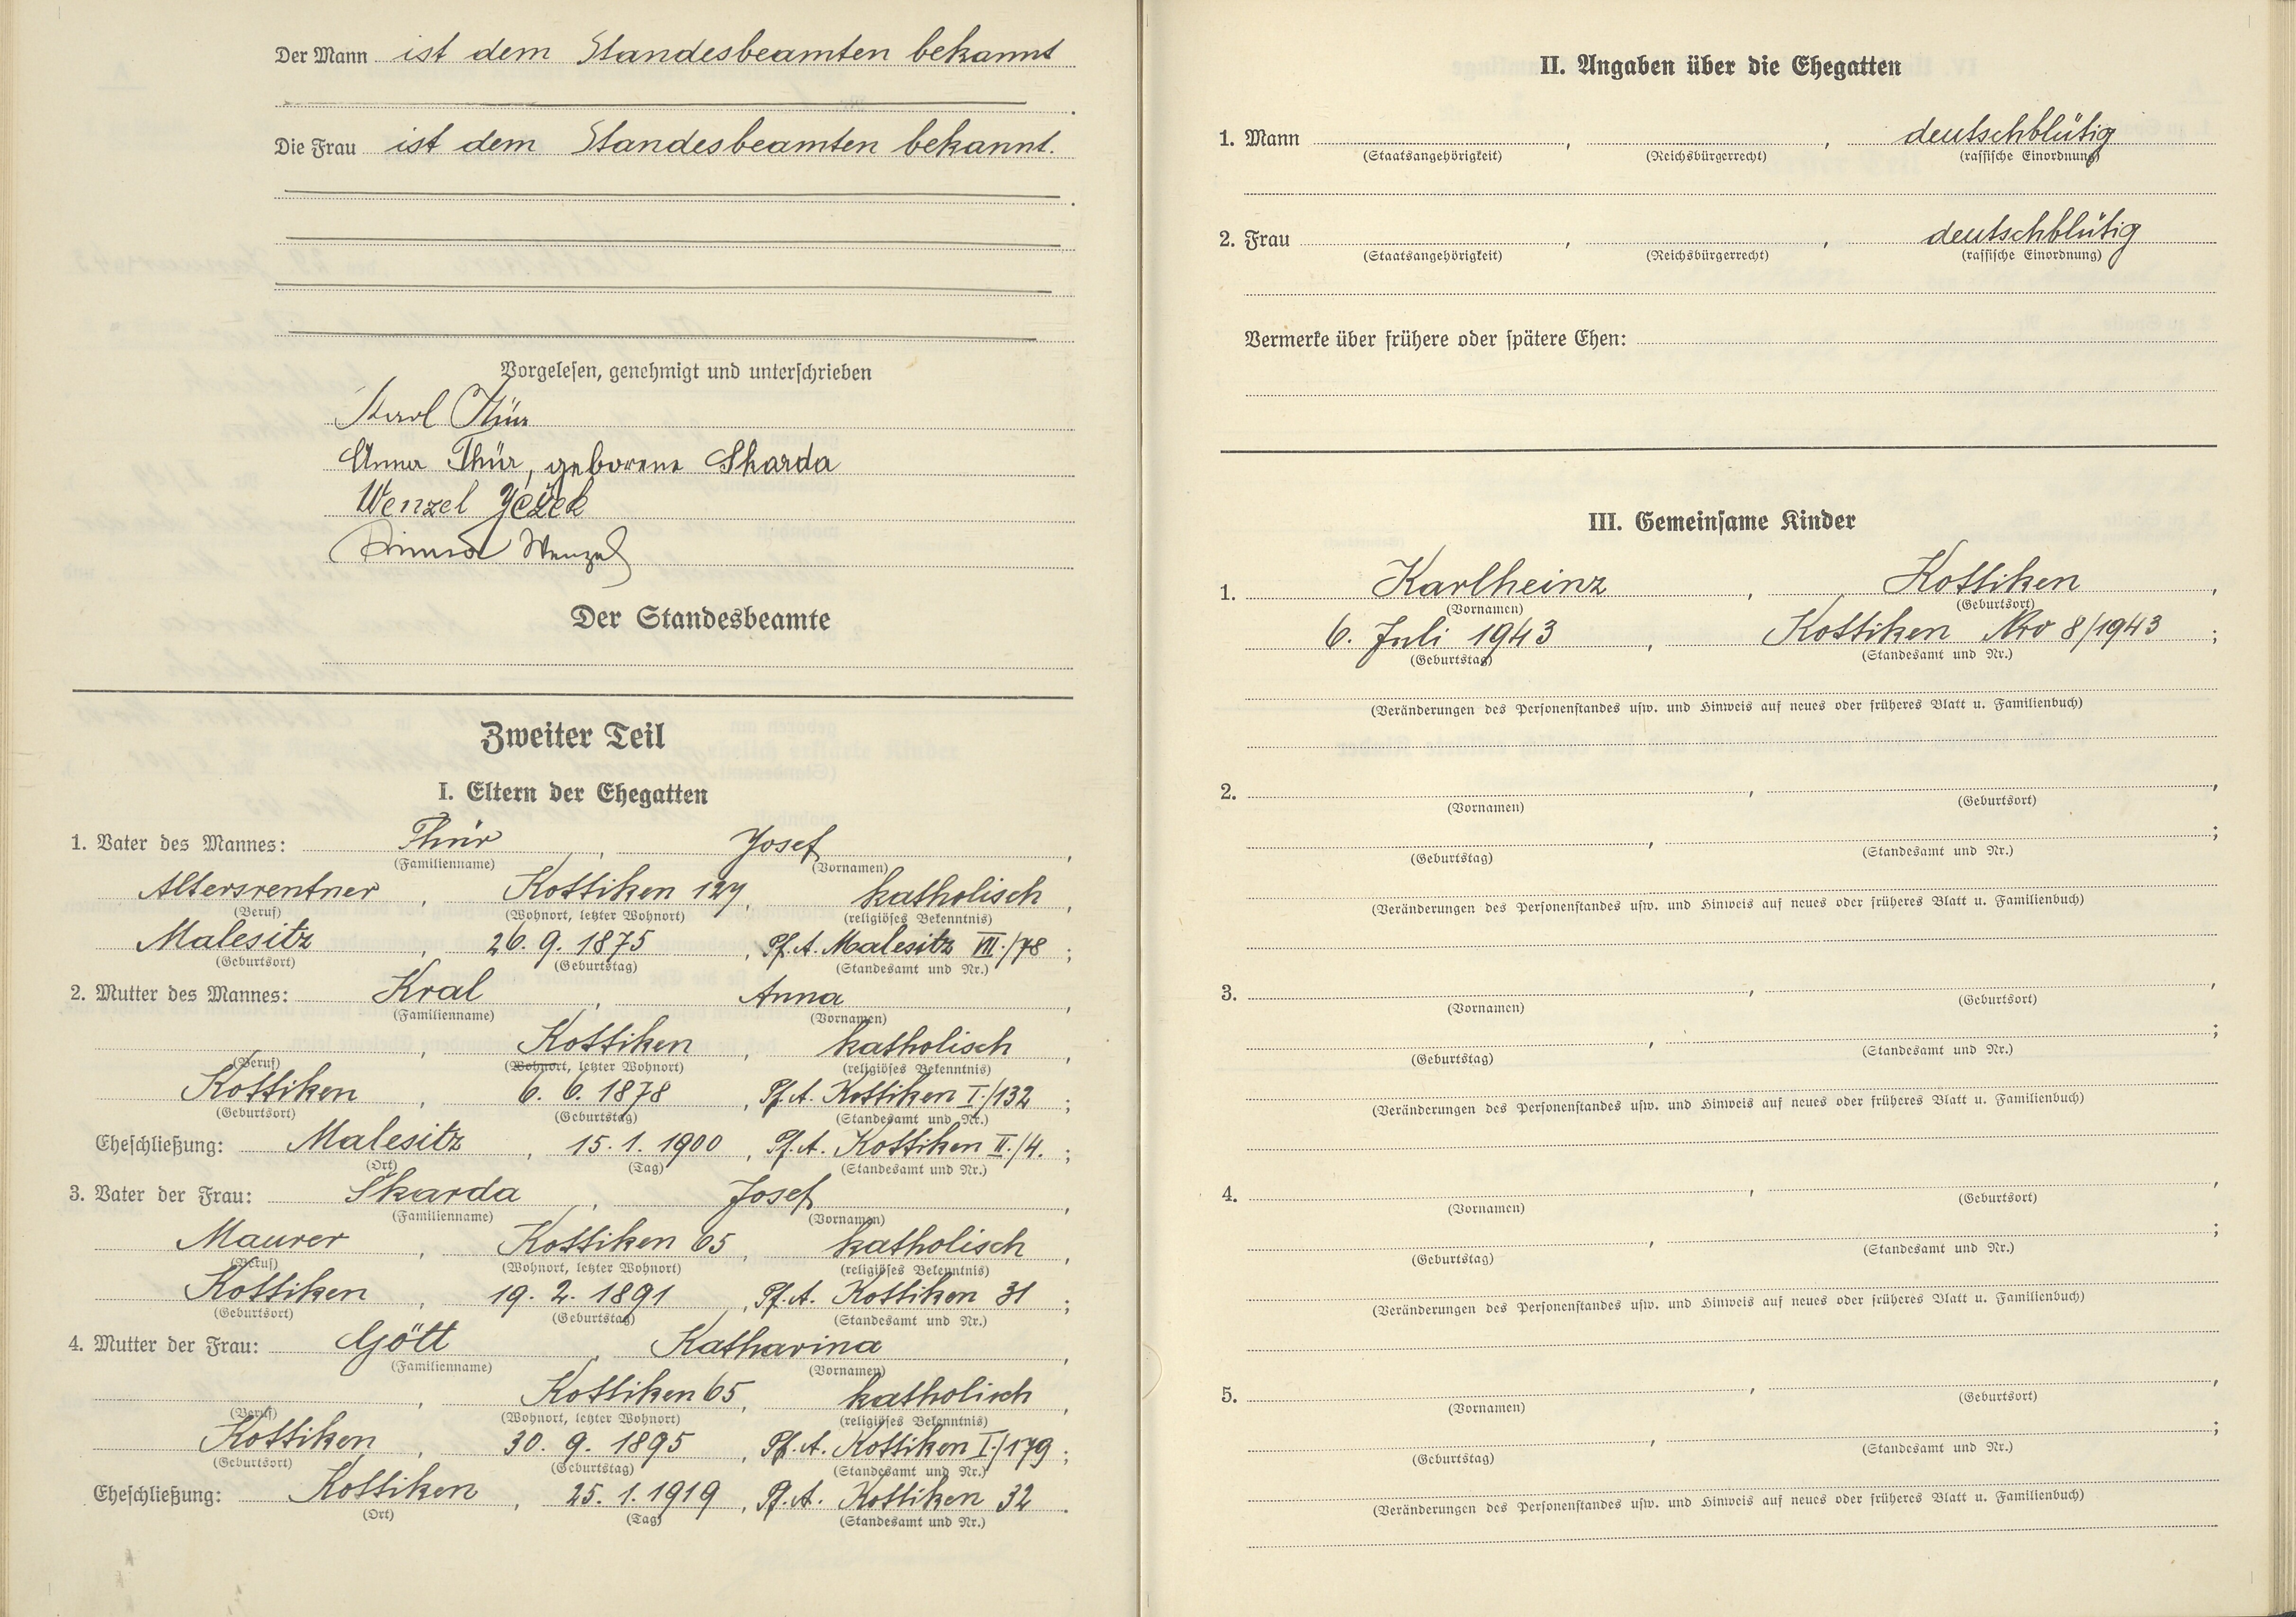 Der Mann ist dem Standesbeamten bekannt
Die Frau ist dem Standesbeamten bekannt.
Vorgelesen, genehmigt und unterschrieben
Karl Thür
Anna Thür, geborene Skarda
Wenzel Ježek
Wenzel
Der Standesbeamte
Zweiter Teil
I. Eltern der Ehegatten
1. Vater des Mannes: Thür, Josef,
(Familienname) (Vornamen)
Altersrentner, Kottiken 127, katholisch,
(Beruf) (Wohnort, letzter Wohnort) (religiöses Bekenntnis)
Malesitz, 26. 9. 1875, Pf. A. Malesitz VII./78;
(Geburtsort) (Geburtstag) (Standesamt und Nr.)
2. Mutter des Mannes: Kral, Anna,
(Familienname) (Vornamen)
, Kottiken, katholisch,
(Beruf) (Wohnort, letzter Wohnort) (religiöses Bekenntnis)
Kottiken, 6. 6. 1878, Pf. A. Kottiken I./132;
(Geburtsort) (Geburtstag) (Standesamt und Nr.)
Eheschließung: Malesitz, 15. 1. 1900, Pf. A. Kottiken II./4.;
(Ort) (Tag) (Standesamt und Nr.)
3. Vater der Frau: Skarda, Josef,
(Familienname) (Vornamen)
Maurer, Kottiken 65, katholisch,
(Beruf) (Wohnort, letzter Wohnort) (religiöses Bekenntnis)
Kottiken, 19. 2. 1891, Pf. A. Kottiken 31;
(Geburtsort) (Geburtstag) (Standesamt und Nr.)
4. Mutter der Frau: Gött, Katharina,
(Familienname) (Vornamen)
, Kottiken 65, katholisch,
(Beruf) (Wohnort, letzter Wohnort) (religiöses Bekenntnis)
Kottiken, 30. 9. 1895, Pf. A. Kottiken I./179;
(Geburtsort) (Geburtstag) (Standesamt und Nr.)
Eheschließung: Kottiken, 25. 1. 1919, Pf. A. Kottiken 32.
(Ort) (Tag) (Standesamt und Nr.)
II. Angaben über die Ehegatten
1. Mann , , deutschblütig
(Staatsangehörigkeit) (Reichsbürgerrecht) (rassische Einordnung)
2. Frau , , deutschblütig
(Staatsangehörigkeit) (Reichsbürgerrecht) (rassische Einordnung)
Vermerke über frühere oder spätere Ehen:
III. Gemeinsame Kinder
1. Karlheinz, Kottiken,
(Vornamen) (Geburtsort)
6. Juli 1943, Kottiken Nro 8/1943;
(Geburtstag) (Standesamt und Nr.)
(Veränderungen des Personenstandes usw. und Hinweis auf neues oder früheres Blatt u. Familienbuch)
2. , ,
(Vornamen) (Geburtsort)
, ;
(Geburtstag) (Standesamt und Nr.)
(Veränderungen des Personenstandes usw. und Hinweis auf neues oder früheres Blatt u. Familienbuch)
3. , ,
(Vornamen) (Geburtsort)
, ;
(Geburtstag) (Standesamt und Nr.)
(Veränderungen des Personenstandes usw. und Hinweis auf neues oder früheres Blatt u. Familienbuch)
4. , ,
(Vornamen) (Geburtsort)
, ;
(Geburtstag) (Standesamt und Nr.)
(Veränderungen des Personenstandes usw. und Hinweis auf neues oder früheres Blatt u. Familienbuch)
5. , ,
(Vornamen) (Geburtsort)
, ;
(Geburtstag) (Standesamt und Nr.)
(Veränderungen des Personenstandes usw. und Hinweis auf neues oder früheres Blatt u. Familienbuch)